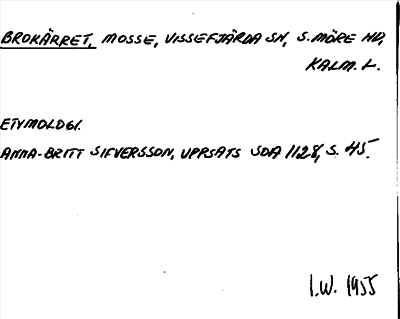 BROKÄRRET, MOSSE, VISSEFJÄRDA SN, S. MÖRE HD,
KALM. L.
ETYMOLOGI.
ANNA-BRITT SIEVERSSON, UPPSATS SOA 1128, S. 45.
I.W. 1955